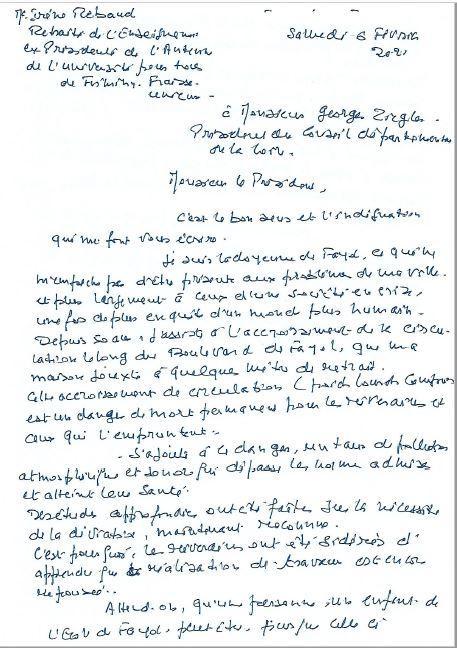 Me Irène Rebaud
Retraitée de l'Enseignement
ex Présidente de l'Antenne
de l'université pour tous
de Firminy. Fraisse-
Unieux -
Samedi 6 Février
2021
à Monsieur Georges Ziegler
Président du Conseil départemental
de la Loire.
Monsieur le Président,
C'est le bon sens et l'indignation
qui me font vous écrire.
Je suis la doyenne de Fayol, ce qui ne
m'empêche pas d'être présente aux problèmes de ma ville
et plus largement à ceux d'une société en crise,
une fois de plus en quête d'un monde plus humain.
Depuis 50 ans, j'assiste à l'accroissement de la circu-
lation le long du Boulevard de Fayol, que ma
maison jouxte à quelques mètres de retrait.
Cet accroissement de circulation (poids lourds compris)
est un danger de mort permanent pour les riverains et
ceux qui l'empruntent.
- S'ajoute à ce danger, un taux de pollution
atmosphérique et sonore qui dépasse les normes admises
et atteint leur santé.
Des études approfondies ont été faites sur la nécessité
de la déviation, maintenant reconnue.
C'est pourquoi, les riverains ont été sidérés d'
apprendre que la réalisation de travaux est encore
repoussée.
Attend-on, qu'une personne, un enfant de
l'Ecole de Fayol, peut-être, puisque celle ci